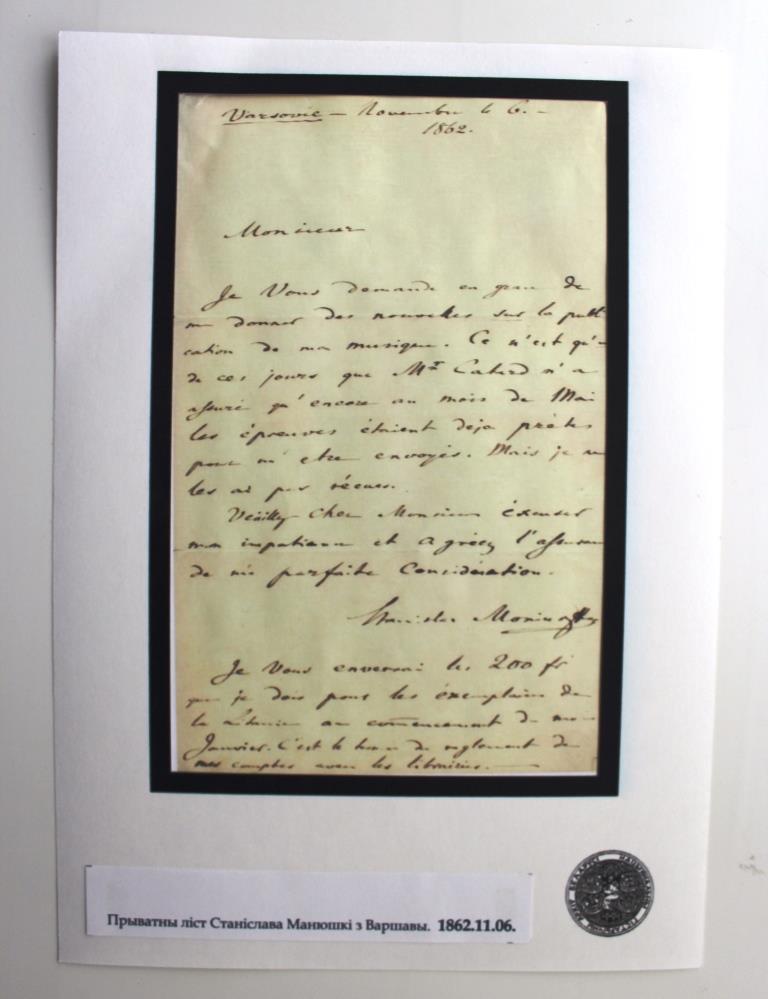 Varsovie – Novembre le 6. –
1862.
Monsieur
Je Vous demande en grace de
me donner des nouvelles sur la publi
cation de ma musique. Ce n'est qu'-
de ces jours que Mr m'a
assuré qu'encore au mois de Mai
les épreuves étaient deja prètes
pour m'etre envoyés. Mais je ne
les ai pas récues.
Veuillez cher Monsieur éxcuser
mon impatience et agréez l'assurance
de ma parfaite Considération.
Stanislas Moniuszko
Je Vous enverrai les 200 fr
que je dois pour les éxemplaires de
la Litanie au commencement de mois
Janvier. C'est le terme de reglement de
mes comptes avec les librairies.
Прыватны ліст Станіслава Манюшкі з Варшавы. 1862.11.06.